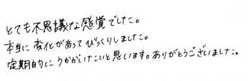 とても不思議な感覚でした。
本当に変化があってびっくりしました。
定期的にうかがいたいと思います。ありがとうございました。